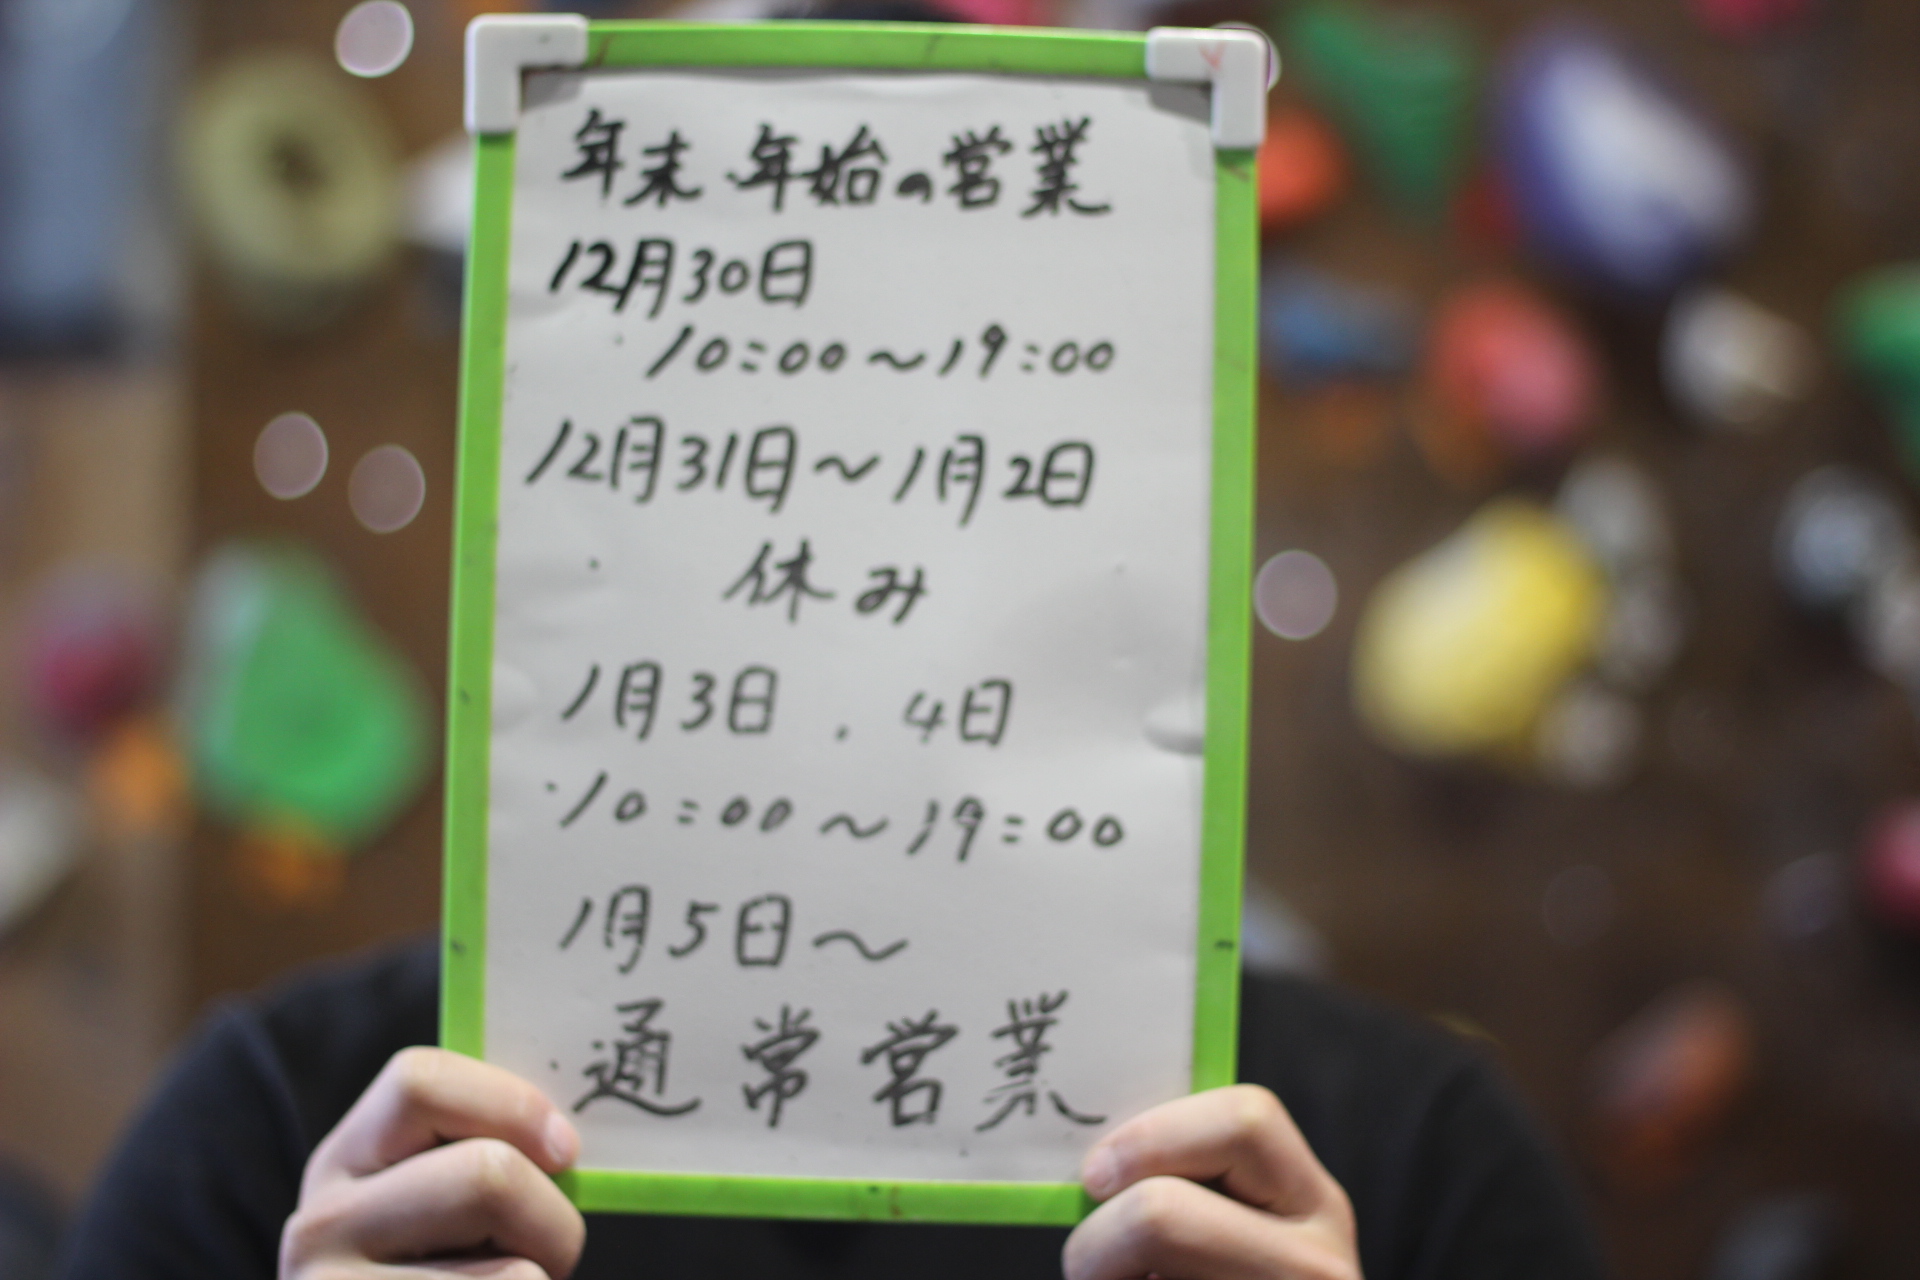 年末年始の営業
12月30日
10:00～19:00
12月31日～1月2日
休み
1月3日．4日
10:00～19:00
1月5日～
通常営業